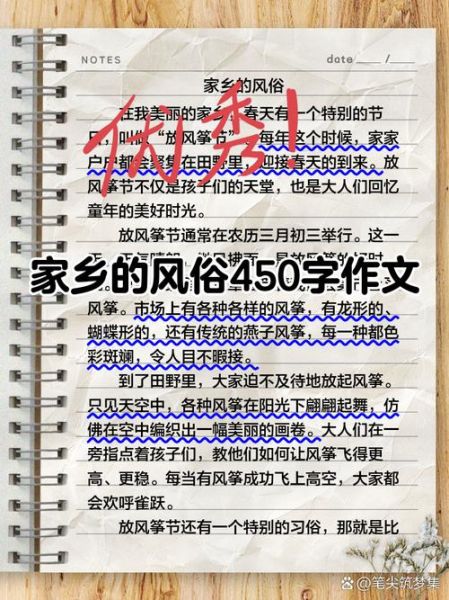 NOTES
date ___ /___
家乡的风俗
优秀!
在我美丽的家乡，春天有一个特别的节
日，叫做“放风筝节”。每年这个时候，家家
户户都会聚集在田野里，迎接春天的到来。放
风筝节不仅是孩子们的天堂，也是大人们回忆
童年的美好时光。
放风筝节通常在农历三月初三举行。这一
家乡的风俗450字作文
风筝。市场上有各种各样的风筝，有龙形的、
蝴蝶形的，还有传统的燕子风筝，每一种都色
彩斑斓，令人目不暇接。
到了田野里，大家迫不及待地放起风筝。
只见天空中，各种风筝在阳光下翩翩起舞，仿
佛在空中编织出一幅美丽的画卷。大人们在一
旁指点着孩子们，教他们如何让风筝飞得更
高、更稳。每当有风筝成功飞上高空，大家都
会欢呼雀跃。
放风筝节还有一个特别的习俗，那就是比
@笔尖筑梦集